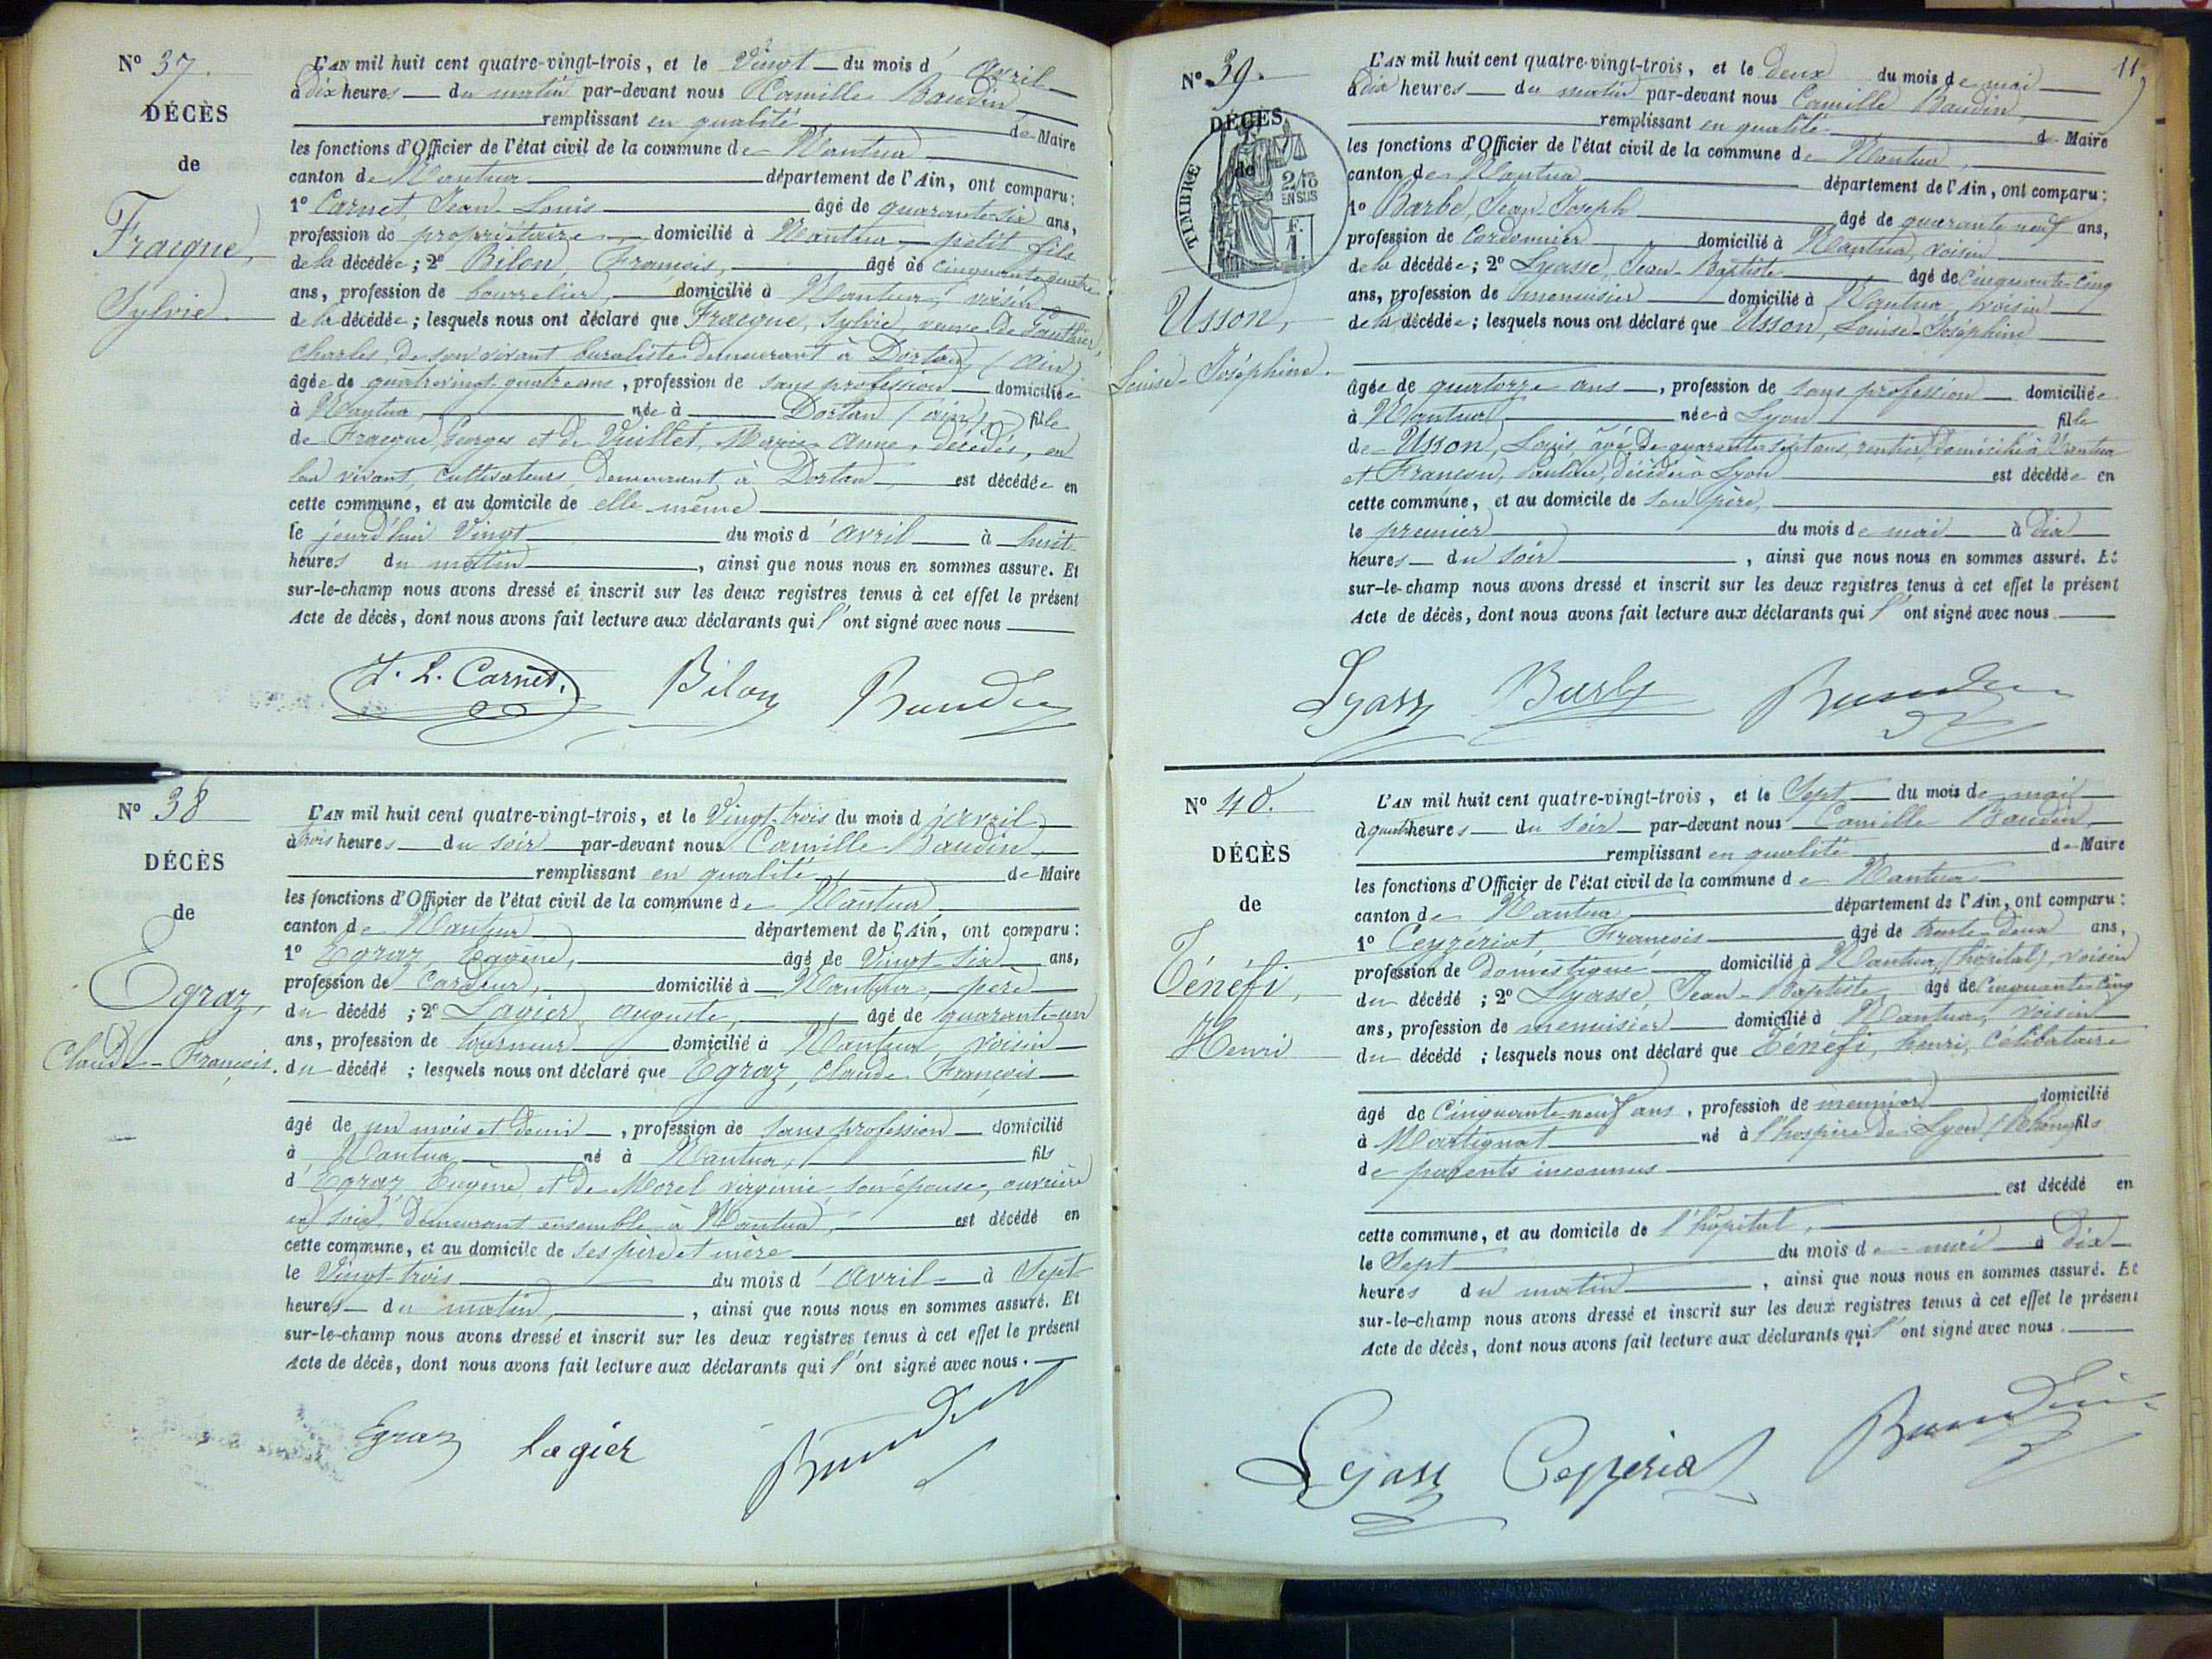 N° 37.
DÉCÈS
de
Fracque,
Sylvie.
L'AN mil huit cent quatre-vingt-trois, et le Vingt du mois d'Avril
à dix heures du matin par-devant nous Camille Baudin
remplissant en qualité de Maire
les fonctions d'Officier de l'état civil de la commune de Nantua
canton de Nantua département de l'Ain, ont comparu :
1° Carnet, Jean-Louis âgé de quarante-six ans,
profession de propriétaire, domicilié à Nantua petit fils
de la décédée ; 2° Bilon, François, âgé de cinquante-quatre
ans, profession de bourrelier, domicilié à Nantua, voisin
de la décédée ; lesquels nous ont déclaré que Fracque, Sylvie, veuve de Gauthier,
Charles, de son vivant buraliste demeurant à Dortan, (Ain)
âgée de quatre vingt quatre ans, profession de sans profession domiciliée
à Nantua, née à Dortan (ain), fille
de Fracque, Georges et de Vuillet, Marie Anne, décédés, en
leur vivant, cultivateurs, demeurant à Dortan est décédée en
cette commune, et au domicile de elle même
le jourd'hui Vingt du mois d'Avril à huit
heures du matin, ainsi que nous nous en sommes assuré. Et
sur-le-champ nous avons dressé et inscrit sur les deux registres tenus à cet effet le présent
Acte de décès, dont nous avons fait lecture aux déclarants qui l'ont signé avec nous
J. L. Carnet. Bilon Baudin
N° 38
DÉCÈS
de
Egraz,
Claude-François.
L'AN mil huit cent quatre-vingt-trois, et le Vingt-trois du mois d'avril
à trois heures du soir par-devant nous Camille Baudin,
remplissant en qualité de Maire
les fonctions d'Officier de l'état civil de la commune de Nantua
canton de Nantua département de l'Ain, ont comparu :
1° Egraz, Eugène, âgé de Vingt-six ans,
profession de Cardeur, domicilié à Nantua, père
du décédé ; 2° Lagier, Auguste, âgé de quarante-un
ans, profession de tourneur domicilié à Nantua, voisin
du décédé ; lesquels nous ont déclaré que Egraz, Claude François
âgé de un mois et demi, profession de sans profession domicilié
à Nantua, né à Nantua, fils
d'Egraz, Eugène, et de Morel virginie, son épouse, ouvrière
en soie, demeurant ensemble à Nantua, est décédé en
cette commune, et au domicile de ses père et mère
le Vingt-trois du mois d'Avril à Sept
heures du matin, ainsi que nous nous en sommes assuré. Et
sur-le-champ nous avons dressé et inscrit sur les deux registres tenus à cet effet le présent
Acte de décès, dont nous avons fait lecture aux déclarants qui l'ont signé avec nous.
Egraz Lagier Baudin
11
N° 39.
DÉCÈS
de
TIMBRE
2/10 EN SUS
F. 1.
Usson,
Louise-Joséphine.
L'AN mil huit cent quatre-vingt-trois, et le deux du mois de mai
à dix heures du matin par-devant nous Camille Baudin,
remplissant en qualité de Maire
les fonctions d'Officier de l'état civil de la commune de Nantua,
canton de Nantua département de l'Ain, ont comparu :
1° Barbe, Jean-Joseph âgé de quarante neuf ans,
profession de Cordonnier domicilié à Nantua, voisin
de la décédée ; 2° Lyasse, Jean-Baptiste âgé de Cinquante-Cinq
ans, profession de menuisier domicilié à Nantua, voisin
de la décédée ; lesquels nous ont déclaré que Usson, Louise-Joséphine
âgée de quatorze ans, profession de sans profession domiciliée
à Nantua née à Lyon fille
de Usson, Louis, âgé de quarante sept ans, rentier, domicilié à Nantua
et Françon, Pauline, décédée à Lyon est décédée en
cette commune, et au domicile de son père,
le premier du mois de mai à dix
heures du soir, ainsi que nous nous en sommes assuré. Et
sur-le-champ nous avons dressé et inscrit sur les deux registres tenus à cet effet le présent
Acte de décès, dont nous avons fait lecture aux déclarants qui l'ont signé avec nous.
Lyass Barbe Baudin
N° 40.
DÉCÈS
de
Ténéfi,
Henri
L'AN mil huit cent quatre-vingt-trois, et le Sept du mois de mai
à quatre heures du soir par-devant nous Camille Baudin
remplissant en qualité de Maire
les fonctions d'Officier de l'état civil de la commune de Nantua
canton de Nantua département de l'Ain, ont comparu :
1° Ceyzériat, François âgé de trente-deux ans,
profession de domestique domicilié à Nantua, (hôpital), voisin
du décédé ; 2° Lyasse, Jean-Baptiste âgé de Cinquante-Cinq
ans, profession de menuisier domicilié à Nantua, voisin
du décédé ; lesquels nous ont déclaré que Ténéfi, henri, Célibataire
âgé de Cinquante-neuf ans, profession de meunier domicilié
à Martignat né à l'hospice de Lyon (Rhône) fils
de parents inconnus
est décédé en
cette commune, et au domicile de l'hôpital,
le Sept du mois de mai à Dix
heures du matin, ainsi que nous nous en sommes assuré. Et
sur-le-champ nous avons dressé et inscrit sur les deux registres tenus à cet effet le présent
Acte de décès, dont nous avons fait lecture aux déclarants qui l'ont signé avec nous.
Lyass Ceyzeriat Baudin